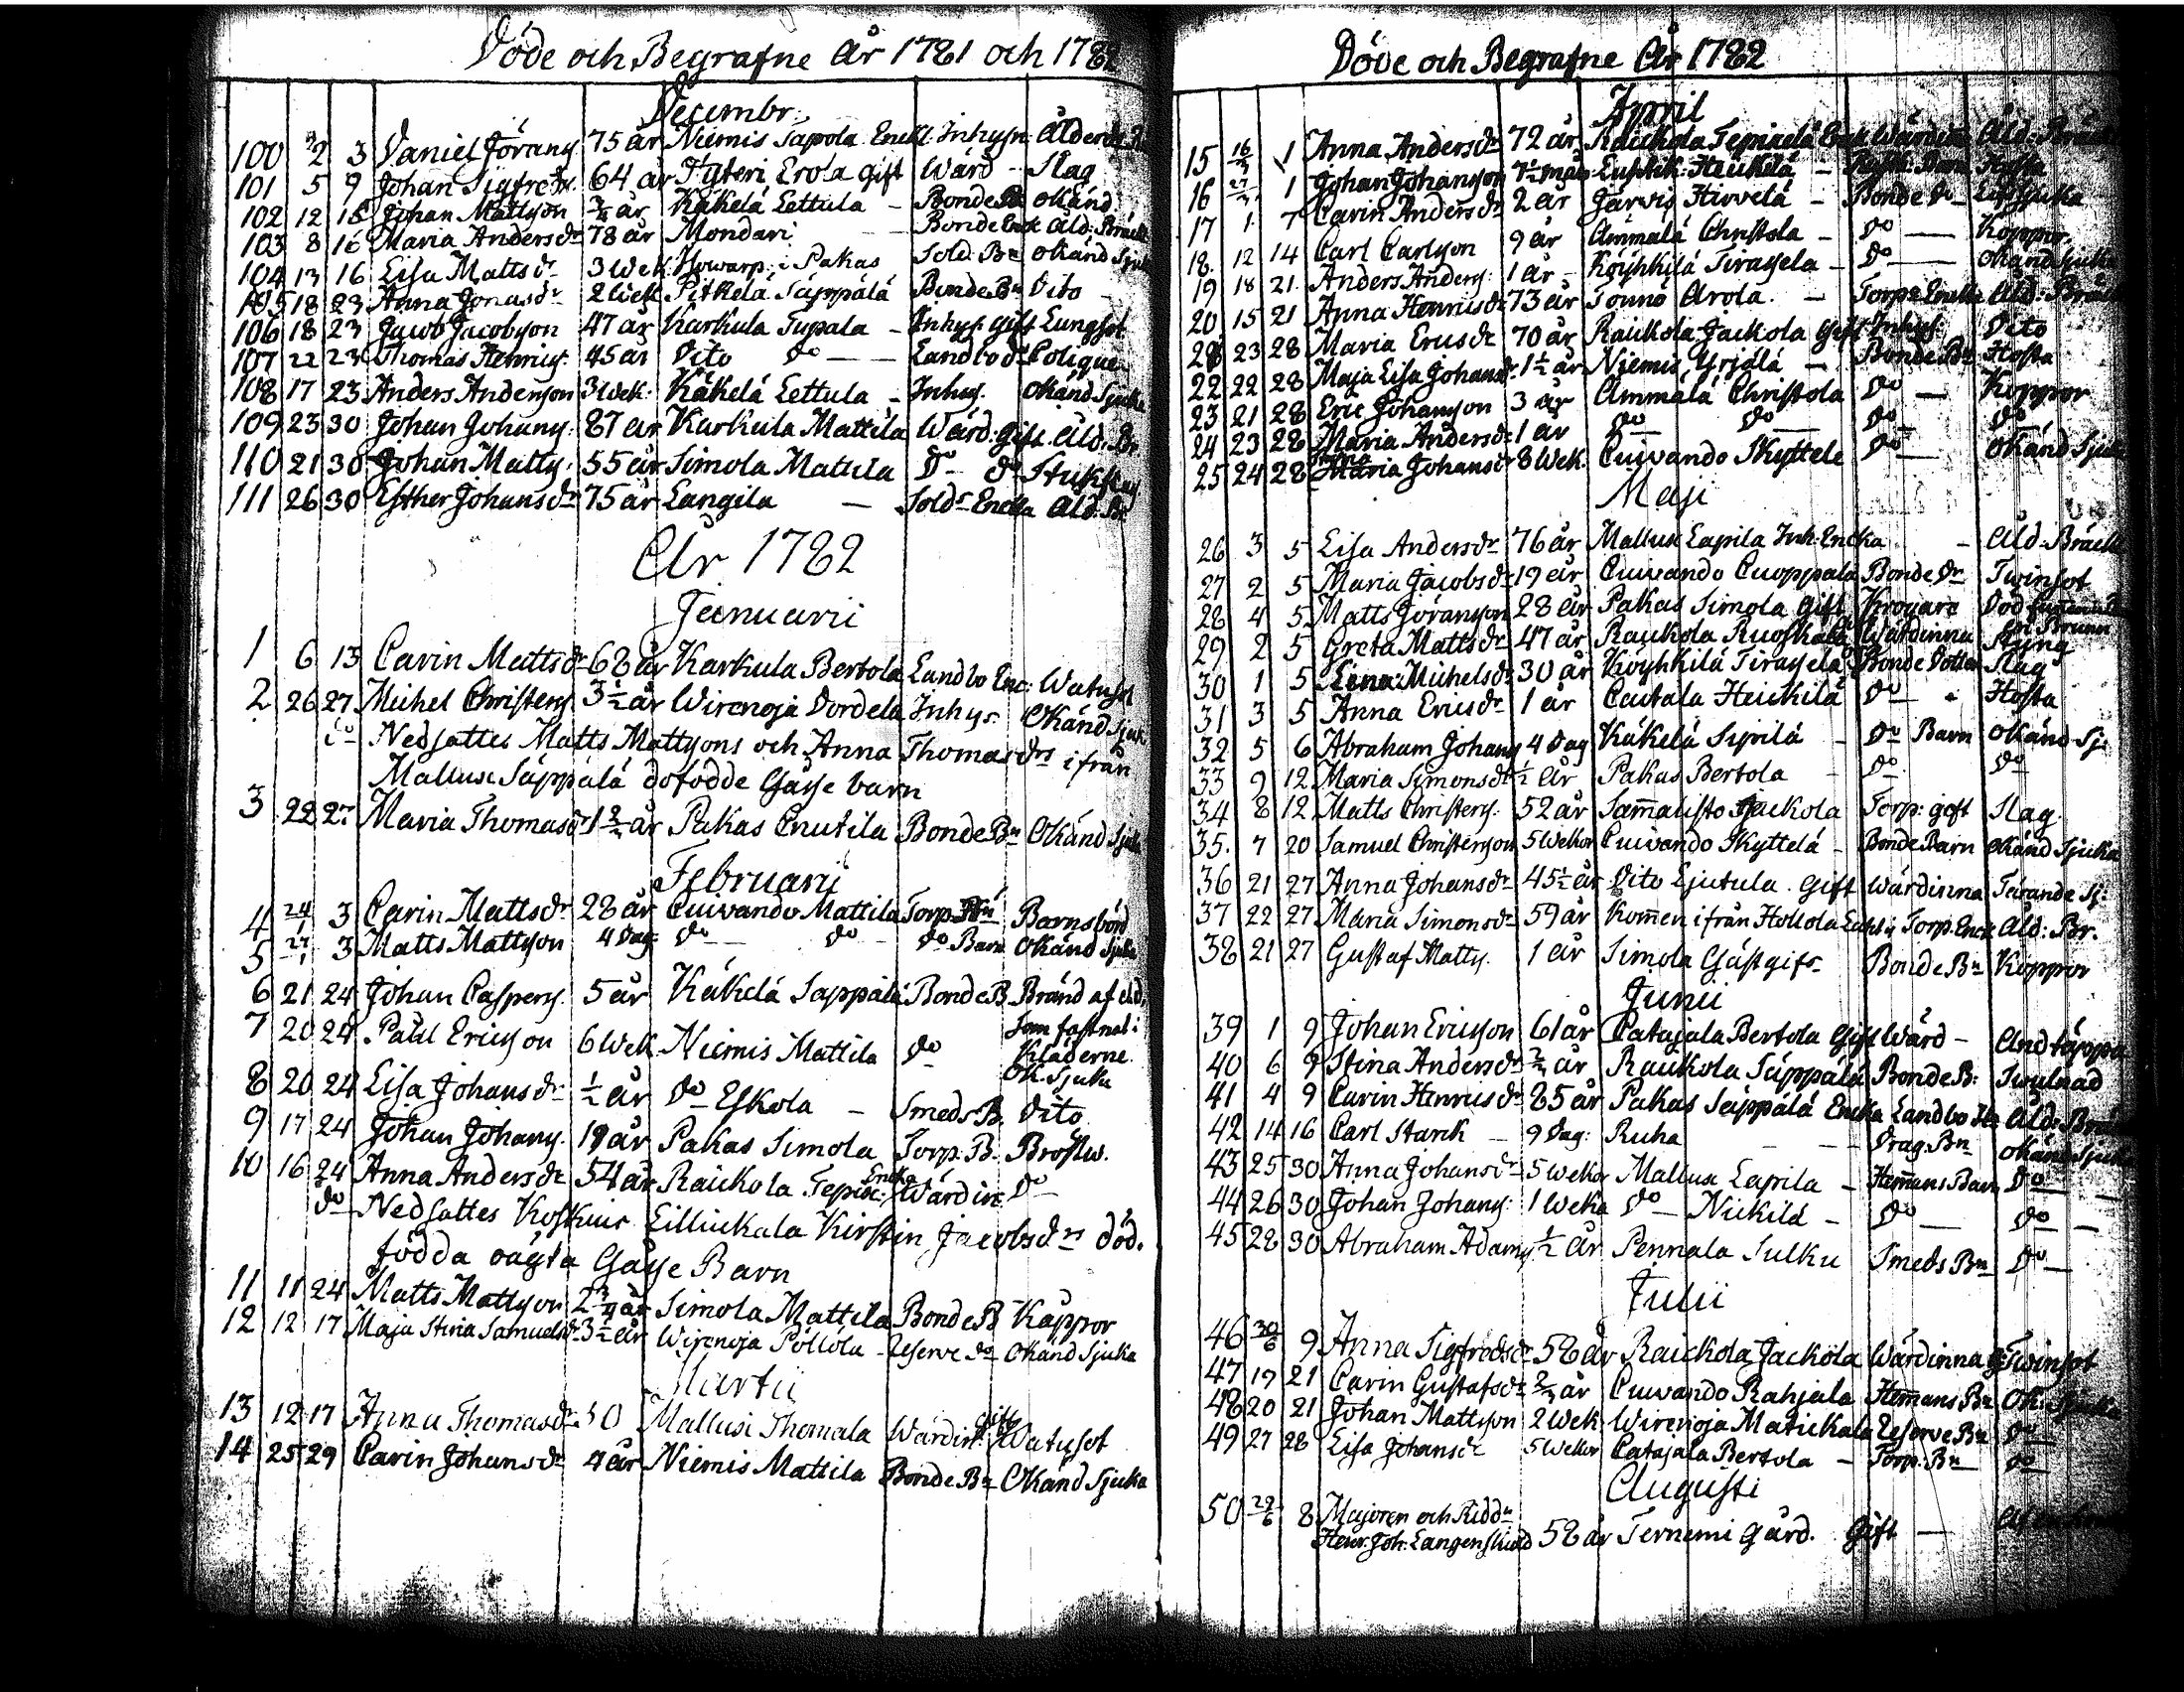 Döde och Begrafne År 1781 och 1782
Decembr:
100 2 3 Daniel Jörans: 75 år Niemis Tapola Enkl. Inhysn: Ålderd:
101 5 9 Johan Sigfreds: 64 år Tyteri Erola gift Wärd - Slag
102 12 16 Johan Mattsson 3/4 år Käkelä Eettula - Bonde okänd
103 8 16 Maria Andersdr 78 år Mondari - Bonde Enk Åld: Bräckl
104 13 16 Lisa Mattsdr 3 Wek: i Pakas Sold: Bn okänd Sjuk
105 18 23 Anna Jonasdr 2 Wek Pitkelä Säppälä Bonde Bn Dito
106 18 23 Jacob Jacobsson 47 år Karkula Tupala - Inhys: gift Lungsot
107 22 23 Thomas Henrics: 45 år Dito Do - Landbo do Colique
108 17 23 Anders Andersson 3 Wek: Käkelä Lettula - Inhys. Okänd Sjuka
109 23 30 Johan Johans: 87 år Karkula Mattila Wärd: Gift. Åld: Br
110 21 30 Johan Matts: 55 år Simola Matula Do - do
111 26 30 Esther Johansdr 75 år Langila - Solds Encka Åld: Br
År 1782
Januarii
1 6 13 Carin Mattsdr 68 år Karkula Bertola Landbo Enc: Watusot
2 26 27 Michel Christers: 3 1/2 år Wirenoja Dordela Inhys: Okänd Sjuk
do Nedsattes Matts Mattssons och Anna Thomasdrs ifrån
Mallusi Säppälä döfödde Gåsse barn
3 22 27 Maria Thomasdr Pakas Cnutila Bonde Bn Okänd Sjuk
Februarii
4 24/1 3 Carin Mattsdr 28 år Cuivando Mattila Torp: Barnsbörd
5 27/1 3 Matts Mattsson 4 Dag: do - do - do Barn Okänd Sjuka
6 21 24 Johan Caspers: 5 år Käkelä Sappala Bonde B. Bränd af eld,
som fastnat i
Kläderne.
7 20 24 Påhl Ericsson 6 Wek Niemis Mattila Do Ok: Sjuka
8 20 24 Lisa Johansdr 1/2 år Do Eskola - Smeds B. Dito
9 17 24 Johan Johans: 19 år Pakas Simola Torp: B. Bröstw.
10 16 24 Anna Andersdr 54 år Raickola Tepis: Encka Wärdin: Do
do Nedsattes Koskuis Lilliukala Kirstin Jacobsdrs död-
födda oägta Gåsse Barn
11 11 24 Matts Mattsson 2 3/4 år Simola Mattila Bonde B Kåppor
12 12 17 Maja Stina Samuelsdr 3 1/2 år Wirenoja Pöllölä - Reserve do Okänd Sjuka
Martii
13 12 17 Anna Thomasdr 50 Mallusi Thomala Wärdin: gift Watusot
14 25 29 Carin Johansdr 4 år Niemis Mattila Bonde Bn Okänd Sjuka
Döde och Begrafne År 1782
April
15 16/3 1 Anna Andersdr 72 år Raickola Enck Wärdin Åld: Bräck
16 27/3 1 Johan Johansson 7 1/2 mån Heickilä - Hosta
17 1 7 Carin Andersdr 2 år Järvis Hirvelä - Bonde do
18 12 14 Carl Carlsson 9 år Ammälä Christola - Do - Koppor.
19 18 21 Anders Anders: 1 år - Köyhkilä Tirassela - Do - okänd Sjuka
20 15 21 Anna Henricsdr 73 år Tönnö Arola. - Torps Encka Åld: Bräck
21 23 28 Maria Ericsdr 70 år Raickola Jackola Gift Inhys: Dito
22 22 28 Maja Lisa Johansdr 1 1/2 år Niemis Yrjälä - Bonde Bn Hosta
23 21 28 Eric Johansson 3 år Ammälä Christola Do - Koppor
24 23 28 Maria Andersdr 1 år Do - Do - Do - Do
25 24 28 Maria Johansdr 8 Wek. Cuivando Skyttele Do - okänd Sjuk
Maji
26 3 5 Lisa Andersdr 76 år Mallusi Lapila Inh: Encka - Åld: Bräckl
27 2 5 Maria Jacobsdr 19 år Cuivando Cuoppala Bonde Dr Twinsot
28 4 5 Matts Göransson 28 år Pakas Simola Gift Krogare Död funnen
en Brunn
29 2 5 Greta Mattsdr 47 år Raukola Ruoskala Wärdinna Styng
30 1 5 Lena Michelsdr 30 år Köyhkilä Tirassela Bonde Dotter Slag
31 3 5 Anna Ericsdr 1 år Cautala Heickilä Do - Hosta
32 5 6 Abraham Johans 4 Dag Käkelä Sipilä - Do Barn okänd Sj:
33 9 12 Maria Simonsdr 1/2 år Pakas Bertola - Do Do
34 8 12 Matts Christers: 52 år Sam̄alisto Jackola Torp: gift Slag
35. 7 20 Samuel Christersson 5 Wekor Cuivando Skyttelä - Bonde Barn okänd Sjuka
36 21 27 Anna Johansdr 45 1/2 år Dito Ljutula. Gift Wärdinna Tärande Sj:
37 22 27 Maria Simonsdr 59 år Kom̄en ifrån Hollola Torp. Enck Åld: Br.
38 21 27 Gustaf Matts. 1 år Simola Gästgifr Bonde Bn Koppor
Junii
39 1 9 Johan Ericsson 61 år Catajala Bertola Gift Wärd - Andtäppa
40 6 9 Stina Andersdr år Raukola Säppälä Bonde B: Swulnad
41 4 9 Carin Henricsdr 85 år Pakas Säppälä Encka Landbo Åld: Bräck
42 14 16 Carl Starck - 9 Dag: Ruha - Drag: Bn okänd Sjuka
43 25 30 Anna Johansdr 5 Wekor Mallusi Lapila - Hem̄ans Barn Do
44 26 30 Johan Johans: 1 Weka Do - Nickilä - Do - Do -
45 28 30 Abraham Adams 1/2 år Pennala Sulku Smeds Bn Do -
Julii
46 30/6 9 Anna Sigfredsdr 58 år Raickola Jackola Wärdinna g: Twinsot
47 19 21 Carin Gustafsdr år Cuivando Rahjala Hem̄ans Bn Ok: Sjuka
48 20 21 Johan Mattsson 2 Wek: Wirenoja Matickala Reserve Bn Do -
49 27 28 Lisa Johansdr 5 Wekor Catajala Bertola - Torp: Bn do
Augusti
50 29/6 8 Majoren och Riddn
Henr: Joh: Langenskiöld 58 år Ternemi Gård. Gift -